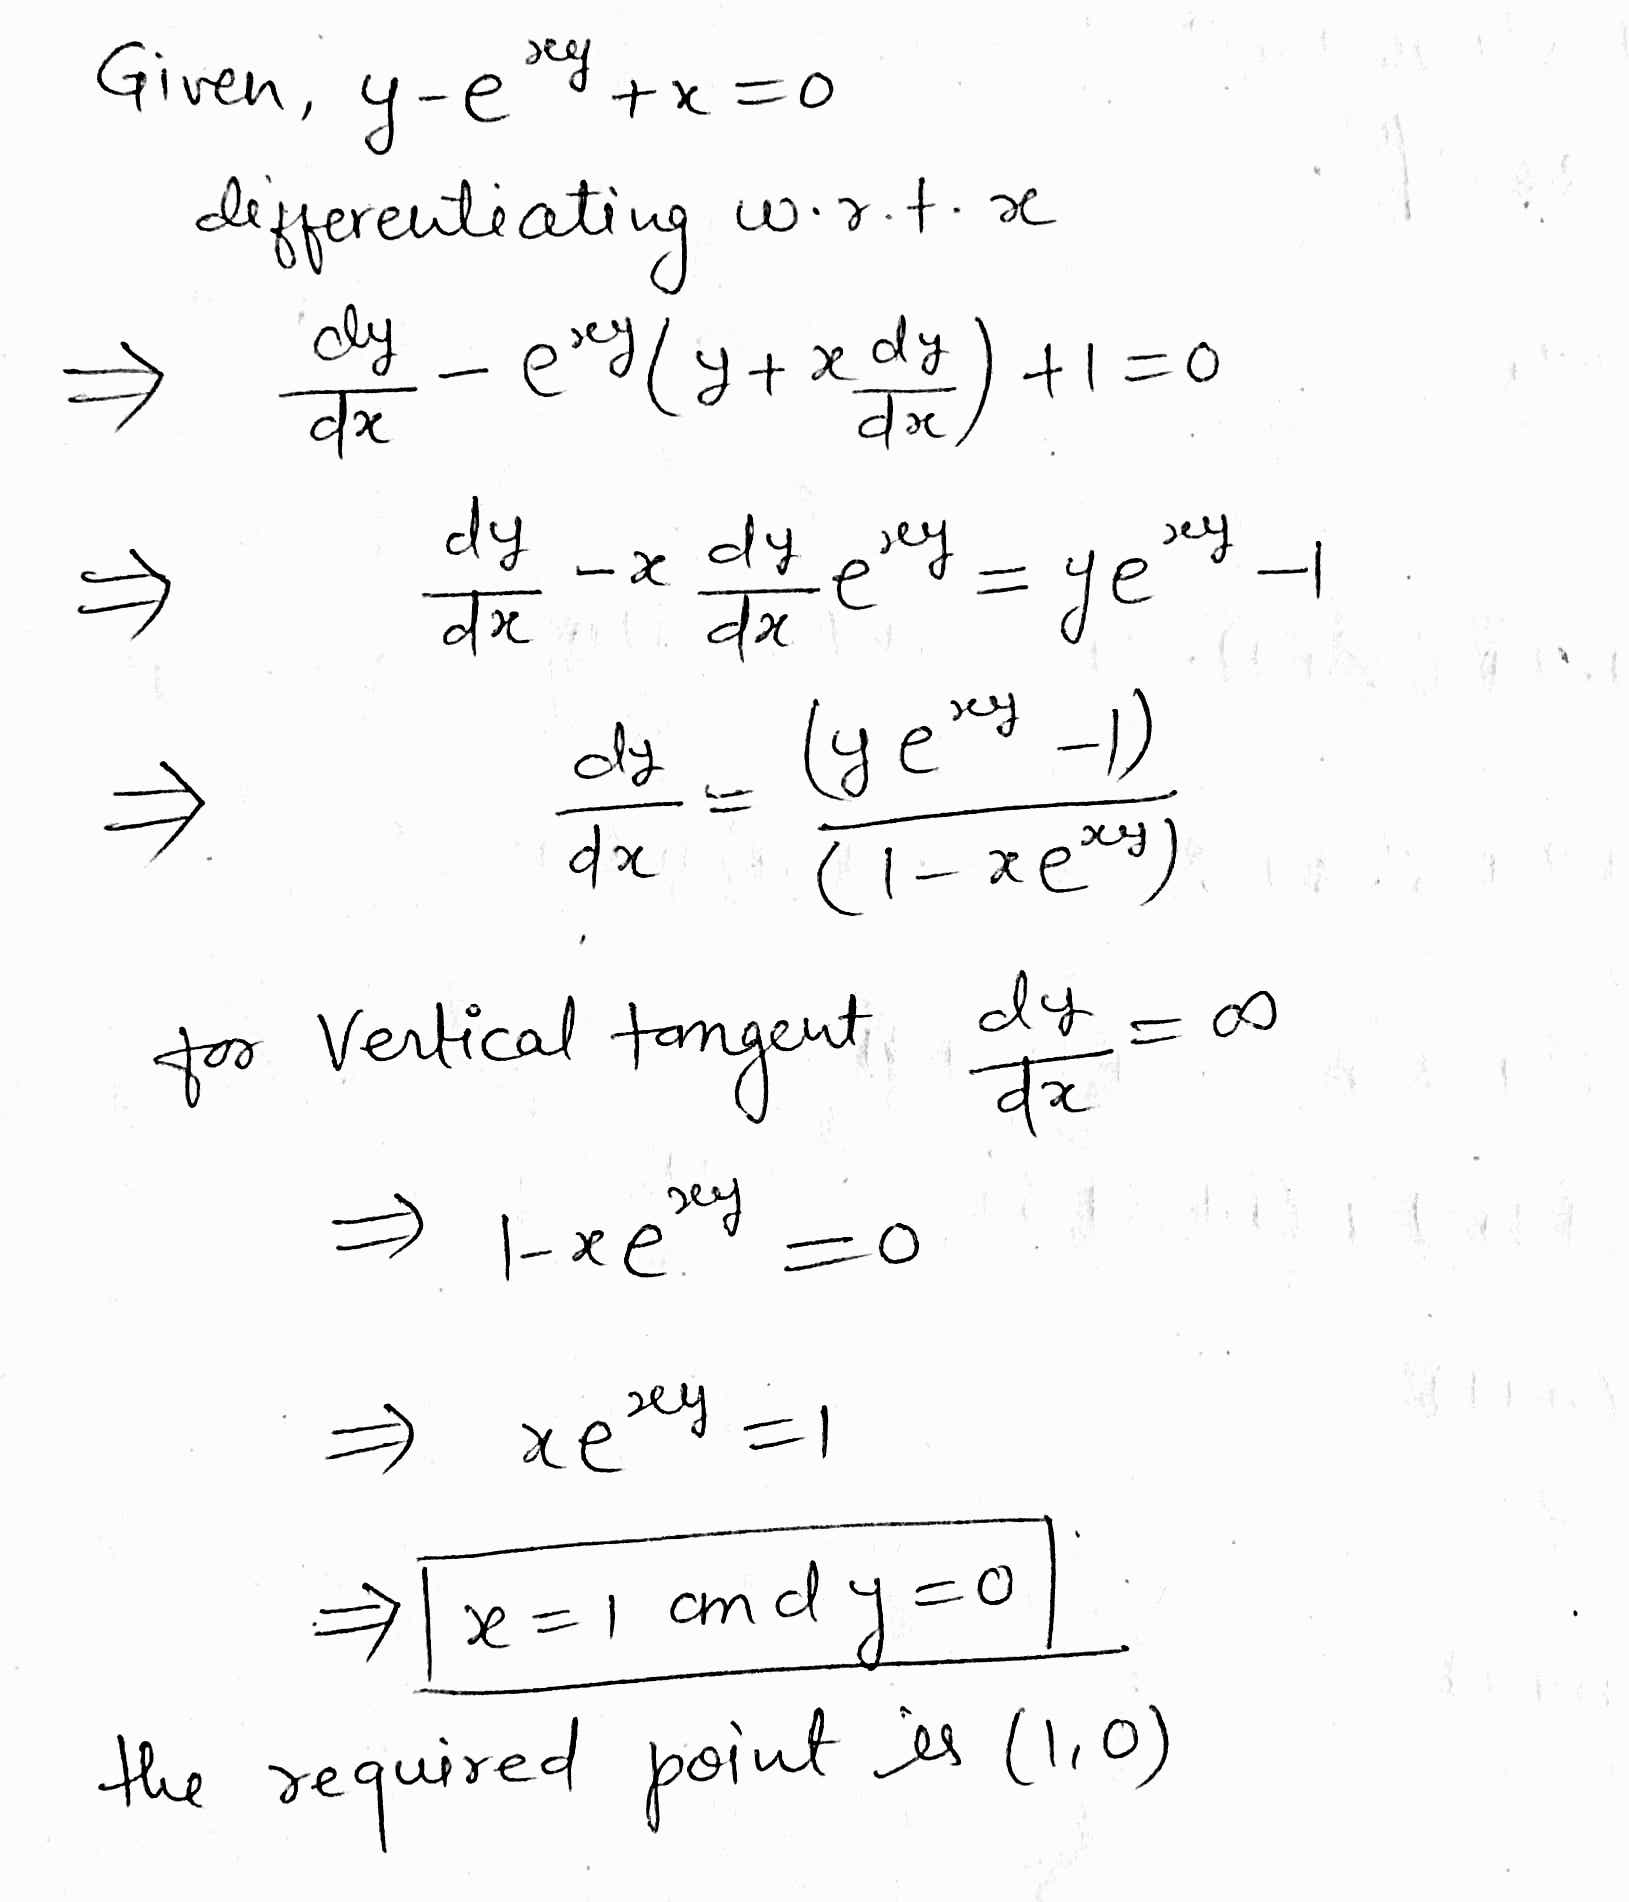 Given, y-e^{xy}+x=0
differentiating w.r.t. x
⇒ dy/dx - e^{xy}(y+x dy/dx)+1=0
⇒ dy/dx -x dy/dx e^{xy} = ye^{xy}-1
⇒ dy/dx = (ye^{xy}-1)/(1-xe^{xy})
for Vertical tangent dy/dx = ∞
⇒ 1-xe^{xy} =0
⇒ xe^{xy} =1
⇒ x=1 and y=0
the required point is (1,0)